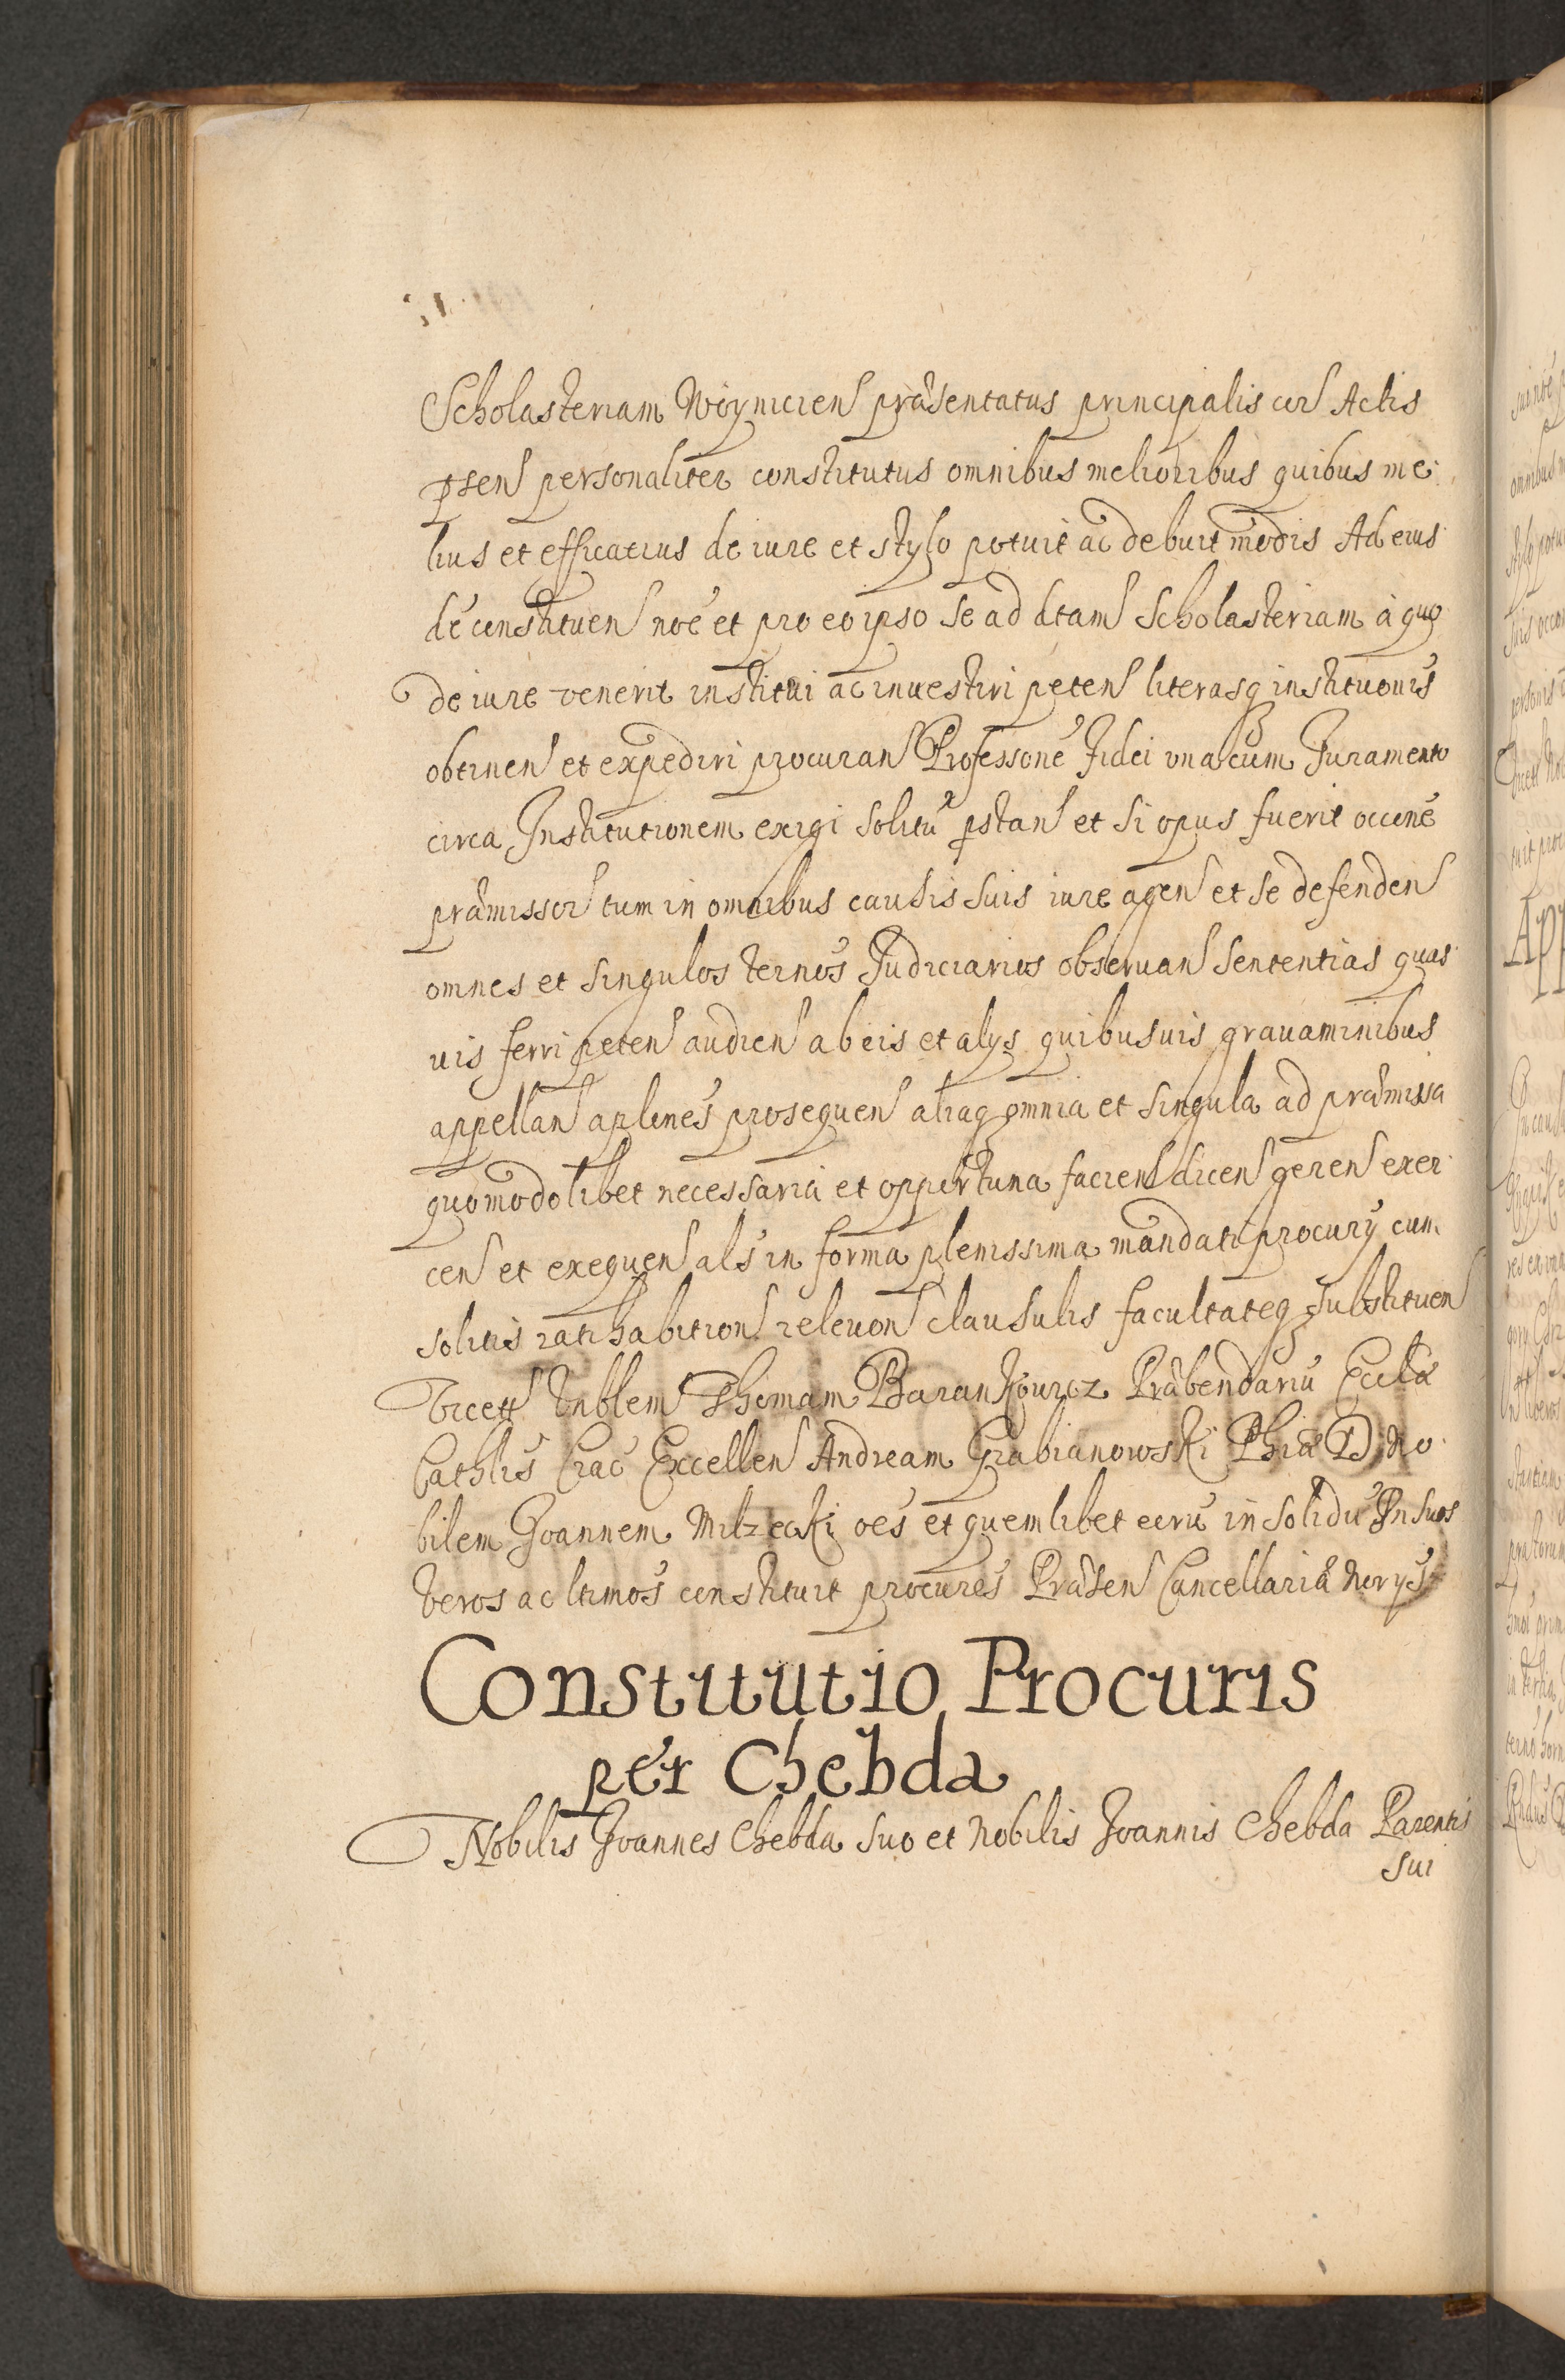 Scholasteriam Woynicien praesentatus principalis cor Actis
psen personaliter constitutus omnibus melioribus quibus me
lius et efficatius de iure et stylo potuit ac debuit modis Ad eius
de constituen noe et pro eo ipso se ad dtam Scholasteriam à quo
de iure venerit institui ac inuestiri peten literasq instituonis
obtinen et expediri procuran Professone Fidei una cum Juramento
circa Institutionem exigi solitu pstan et si opus fuerit occone
praemissor tum in omnibus causis suis iure agen et se defenden
omnes et singulos ternos Judiciarios obseruan sententias quas
uis ferri peten audien ab eis et alys quibusuis grauaminibus
appellan aplones prosequen aliaq omnia et singula ad praemissa
quomodolibet necessaria et opportuna facien dicen geren exer
cen et exequen als in forma plenissima mandati procury cum
solitis ratihabition releuon clausulis facultateq substituen
Vnblem Thomam Barankowicz Praebendariu Eccla
Cathlis Crac Excellen Andream Grabianowski Phia D, No
bilem Joannem Milzecki oes et quemlibet eoru in solidu In suos
veros ac ltimos constituit procures Praesen Cancellaria Norys
Constitutio Procuris
per Chebda
Nobilis Joannes Chebda suo et Nobilis Joannis Chebda Parentis
sui